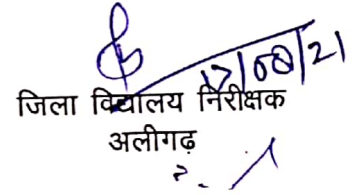 17/08/21
जिला विद्यालय निरीक्षक
अलीगढ़